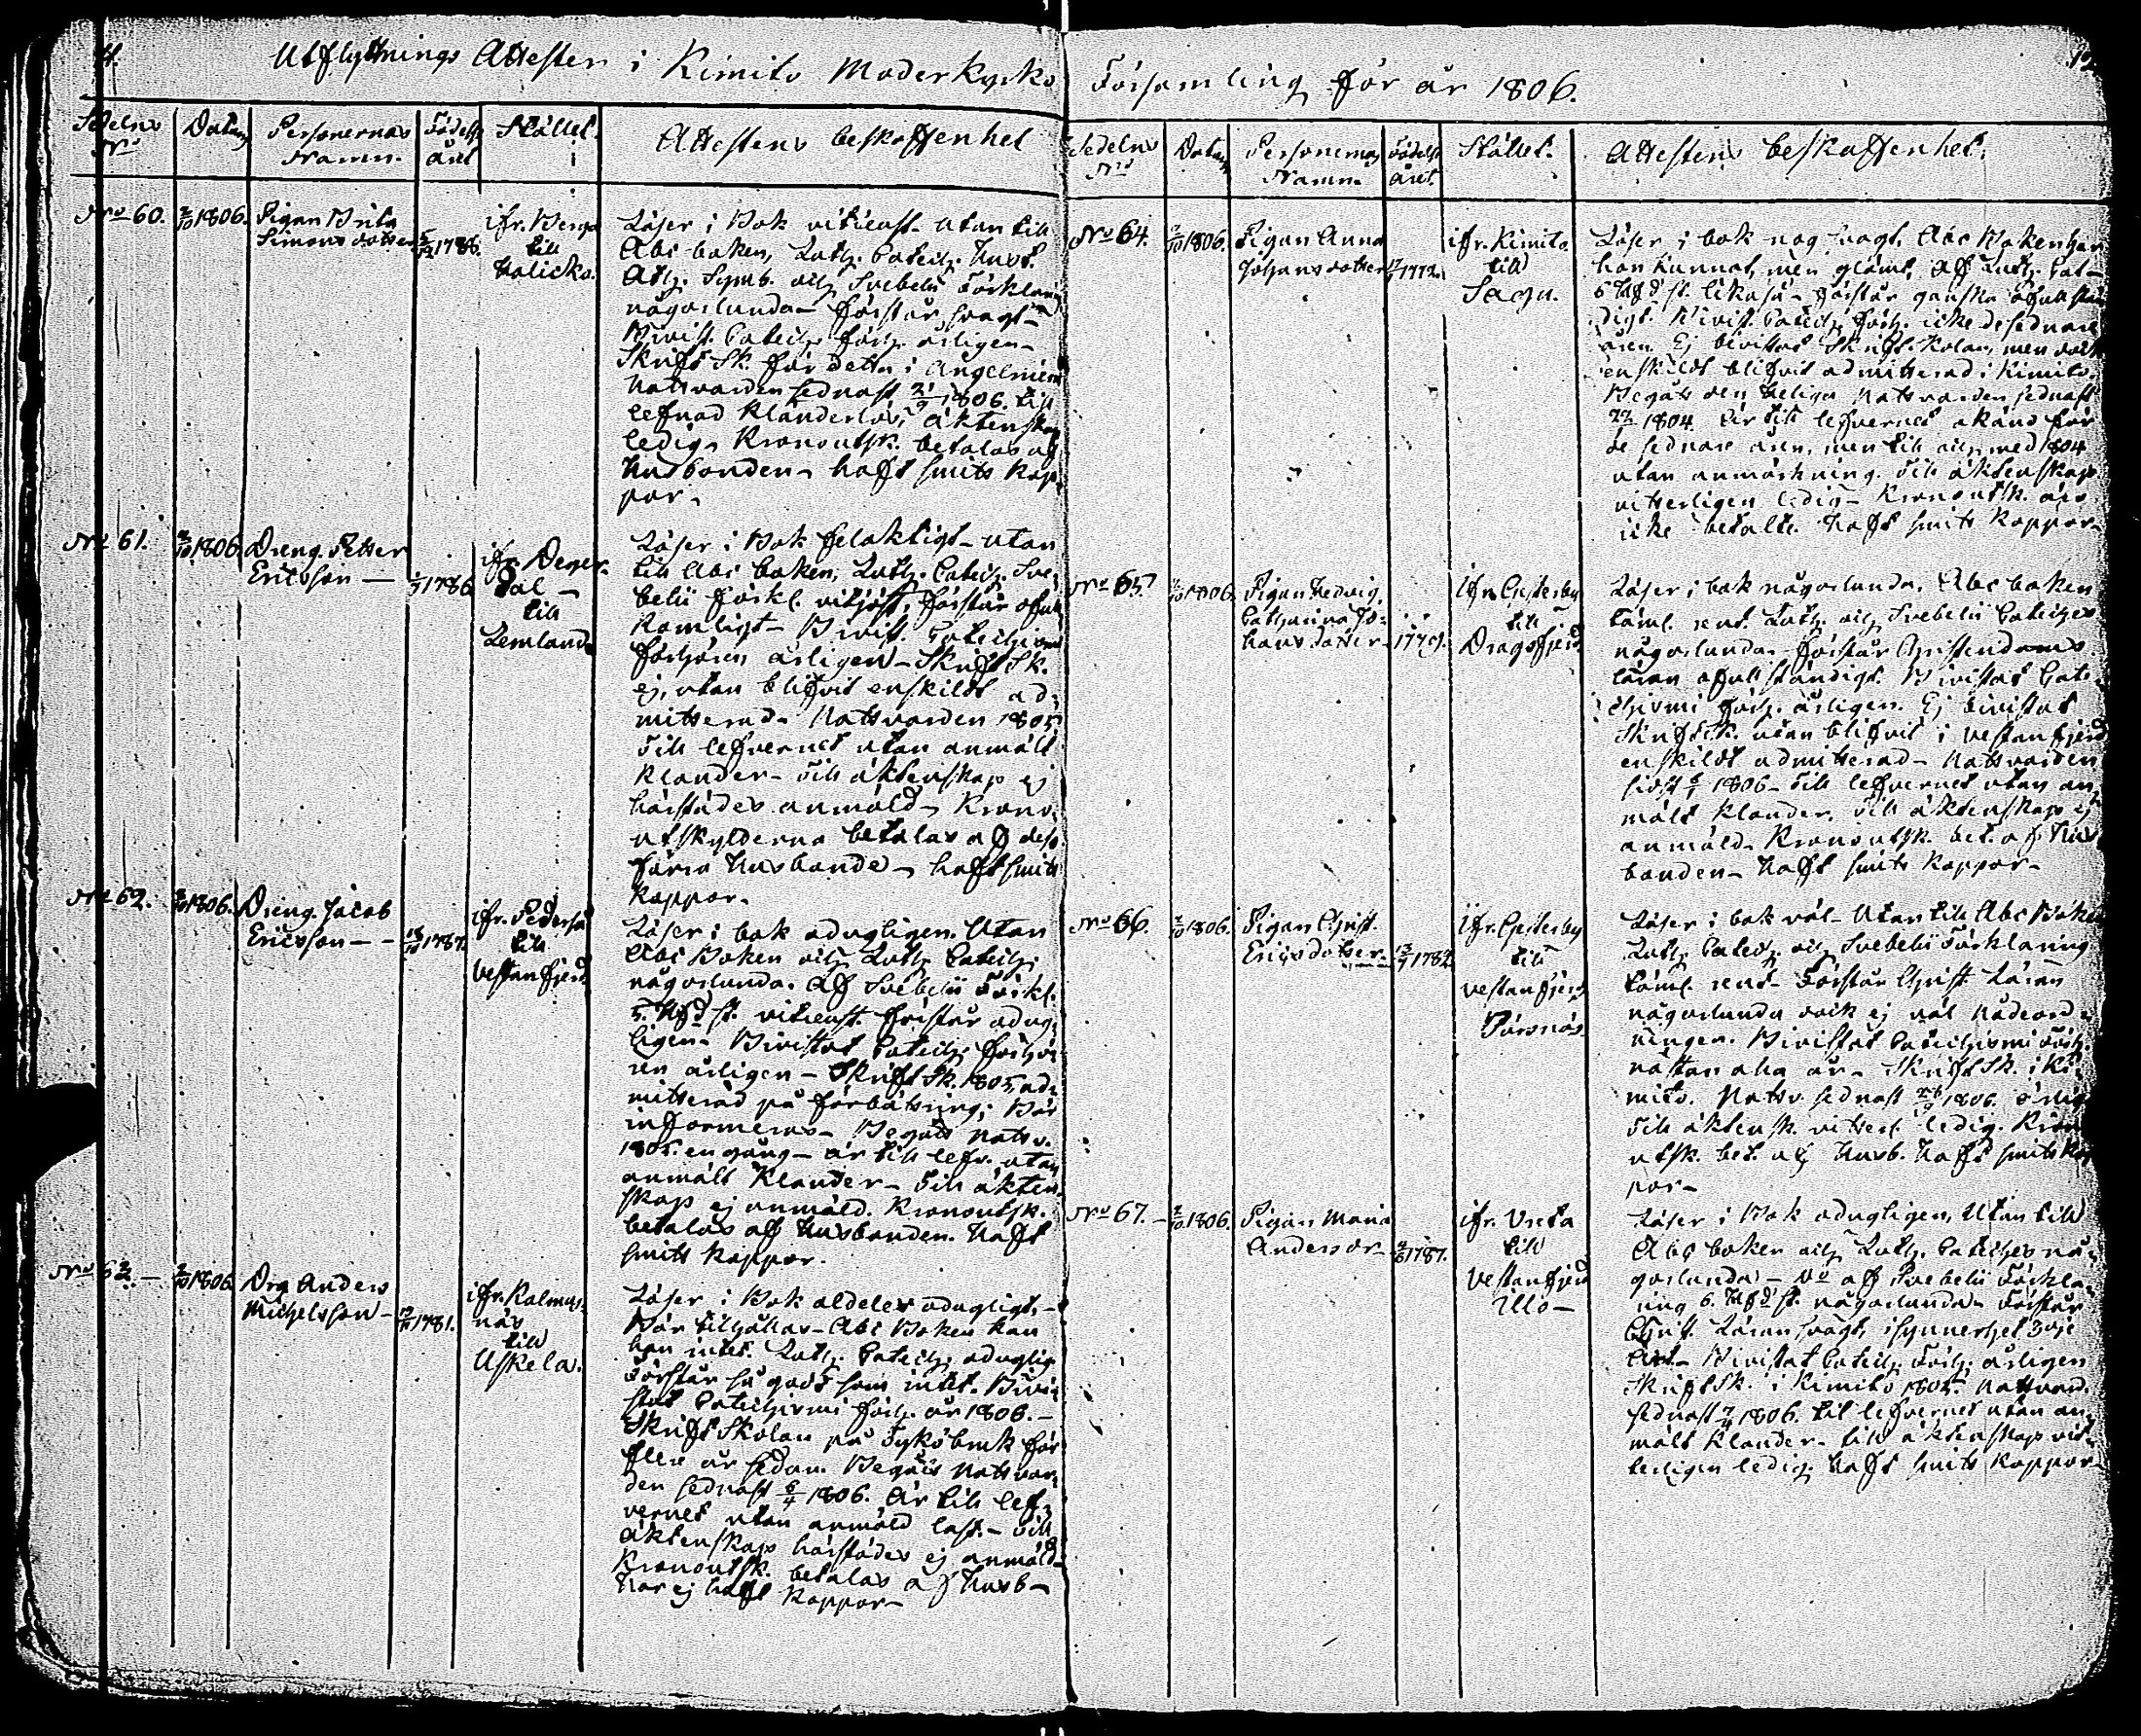 Utflyttnings Attester i Kimito Moderkyrko
Sedelns N:o
Datum
Personernas Namn.
Födelse året
Stället.
Attestens beskaffenhet
N:o 60. 2/10 1806. Pigan Brita
Simonsdotter 1786.
ifr. Berga
till
Halicko.
Läser i Bok vitieust. Utan till
Abc boken, Luth. Catech. Hust.
Ath. Symb. och Svebelii Förklar.
någorlunda förstår svagt
Bivist. Catech. förh. årligen
Skrift Sk. för detta i Angelniemi
Nattvarden sednast 21/9 1806. till
lefnad klanderlös, äktenskap
ledig. Kronoutsk. betalas af
Husbonden haft smitt kop-
por.
N:o 61. 2/10 1806. Dreng. Petter
Ericsson — 1786
ifr. Deger-
dal
till
Lemland.
Läser i Bok felaktigt utan
till Abc boken, Luth. Catech. Sve-
belii förkl. förstår ofull
komligt Bivist. Catechismi
förhören årligen Skrift Sk.
ej, utan blifvit enskildt ad-
mitterad. Nattvarden 1805
Till lefvernet utan anmält
klander. Till äktenskap ej
härstädes anmäld. Krono-
utskylderna betalas af dess
förra husbonde haft smitt
koppor.
N:o 62. 2/10 1806. Dreng. Jacob
Ericsson 1787.
ifr. Pederså
till
Vestanfjerd
Läser i bok odugligen. Utan
Abc Boken och Luth. Catech.
någorlunda. Af Svebelii Förkl.
5. Hfd st. vitieust. förstår odug-
ligen. Bivistat Catech. förhö-
ren årligen Skrift Sk. 1805 ad-
mitterad på förbättring; Bör
informeras. Begått Nattv.
1805. en gång är till lefv. utan
anmält klander. Till äkten-
skap ej anmäld. Kronoutsk.
betalas af Husbonden. Haft
smitt koppor.
N:o 63. 2/10 1806. Drg Anders
Michelsson 1781.
ifr. Kalmus-
näs
till
Uskela.
Läser i Bok aldeles odugligt.
Bör tilhållas Abc Boken kan
han intet. Luth. Catech. oduglig
Förstår så godt som intet. Bivi-
stat Catechismi förh. år 1806.
Skrift Skolan på Tykö bruk för
flere år sedan. Begått Nattvar-
den sednast 6/4 1806. Är till lef-
vernet utan anmäld last. Till
äktenskap härstädes ej anmäld
Kronoutsk. betalas af Husb.
Har ej haft koppor
Församling för år 1806.
Sedelns N:o
Datum
Personernas Namn.
Födelse året.
Stället.
Attestens beskaffenhet.
N:o 64. 2/10 1806. Pigan Anna
Johansdotter 1772.
ifr. Kimito
till
Sagu.
Läser i bok nog svagt. Abc Boken har
hon kunnat, men glömt, af Luth. Cat-
5 Hfd st. likaså förstår ganska ofullstän
digt. Bivist. Catech. förh. icke de sednare
åren. Ej bivistat Skrift Skolan, men dock
enskildt blifvit admitterad i Kimito.
Begått den heliga Nattvarden sednast
1804. Är till lefvernet okänd för
de sednare åren, men till och med 1804
utan anmärkning. Till äktenskap
vitterligen ledig. Kronoutsk. äro
icke betalte. Haft smitt koppor
N:o 65. 2/10 1806. Pigan Hedvig
Catharina Jo-
hansdotter
ifr. Gesterby
till
Dragsfjerd
Läser i bok någorlunda. Abc boken
täml. rent. Luth. och Svebelii Catechs
någorlunda förstår Christendoms
läran ofullständigt. Bivistat Cate-
chismi förh. årligen. Ej bivistat
Skrift Sk. utan blifvit i Vestanfjerd
enskildt admitterad. Nattvarden
sidst 1806. Till lefvernet utan an-
mält klander. Till äktenskap ej
anmäld. Kronoutsk. bet. af Hus-
bonden Haft smitt koppor
N:o 66. 2/10 1806. Pigan Christ.
Ericsdotter. 1782
ifr. Gesterby
till
Vestanfjerd
Pörsnäs.
Läser i bok väl. Utan till Abc Boken
Luth. Catech. och Svebelii Förklaring
täml. rent. Förstår Christ. Läran
någorlunda dock ej väl Nådeord-
ningen. Bivistat Catechismi Förh.
nästan alla år. Skrift Sk. i Ki-
mito. Nattv. sednast 1806.
Till äktensk. vitterl. ledig. Kron
utsk. bet. af Husb. Haft smitt kop
por
N:o 67. 2/10 1806. Pigan Maria
Andersdr 1787.
ifr. Vreta
till
Vestanfjerd
Illo
Läser i Bok odugligen, Utan till
Abc boken och Luth. Catechs nå-
gorlunda af Svebelii Förkla-
ring 6. Hfd st. någorlunda. Förstår
Christ. Läran svagt, isynnerhet 3dje
Art. Bivistat Catech. Förh. årligen
Skrift Sk. i Kimito 1805. Nattvard.
sednast 1806. till lefvernet utan an-
mält klander. till äktenskap vit-
terligen ledig. Haft smitt koppor